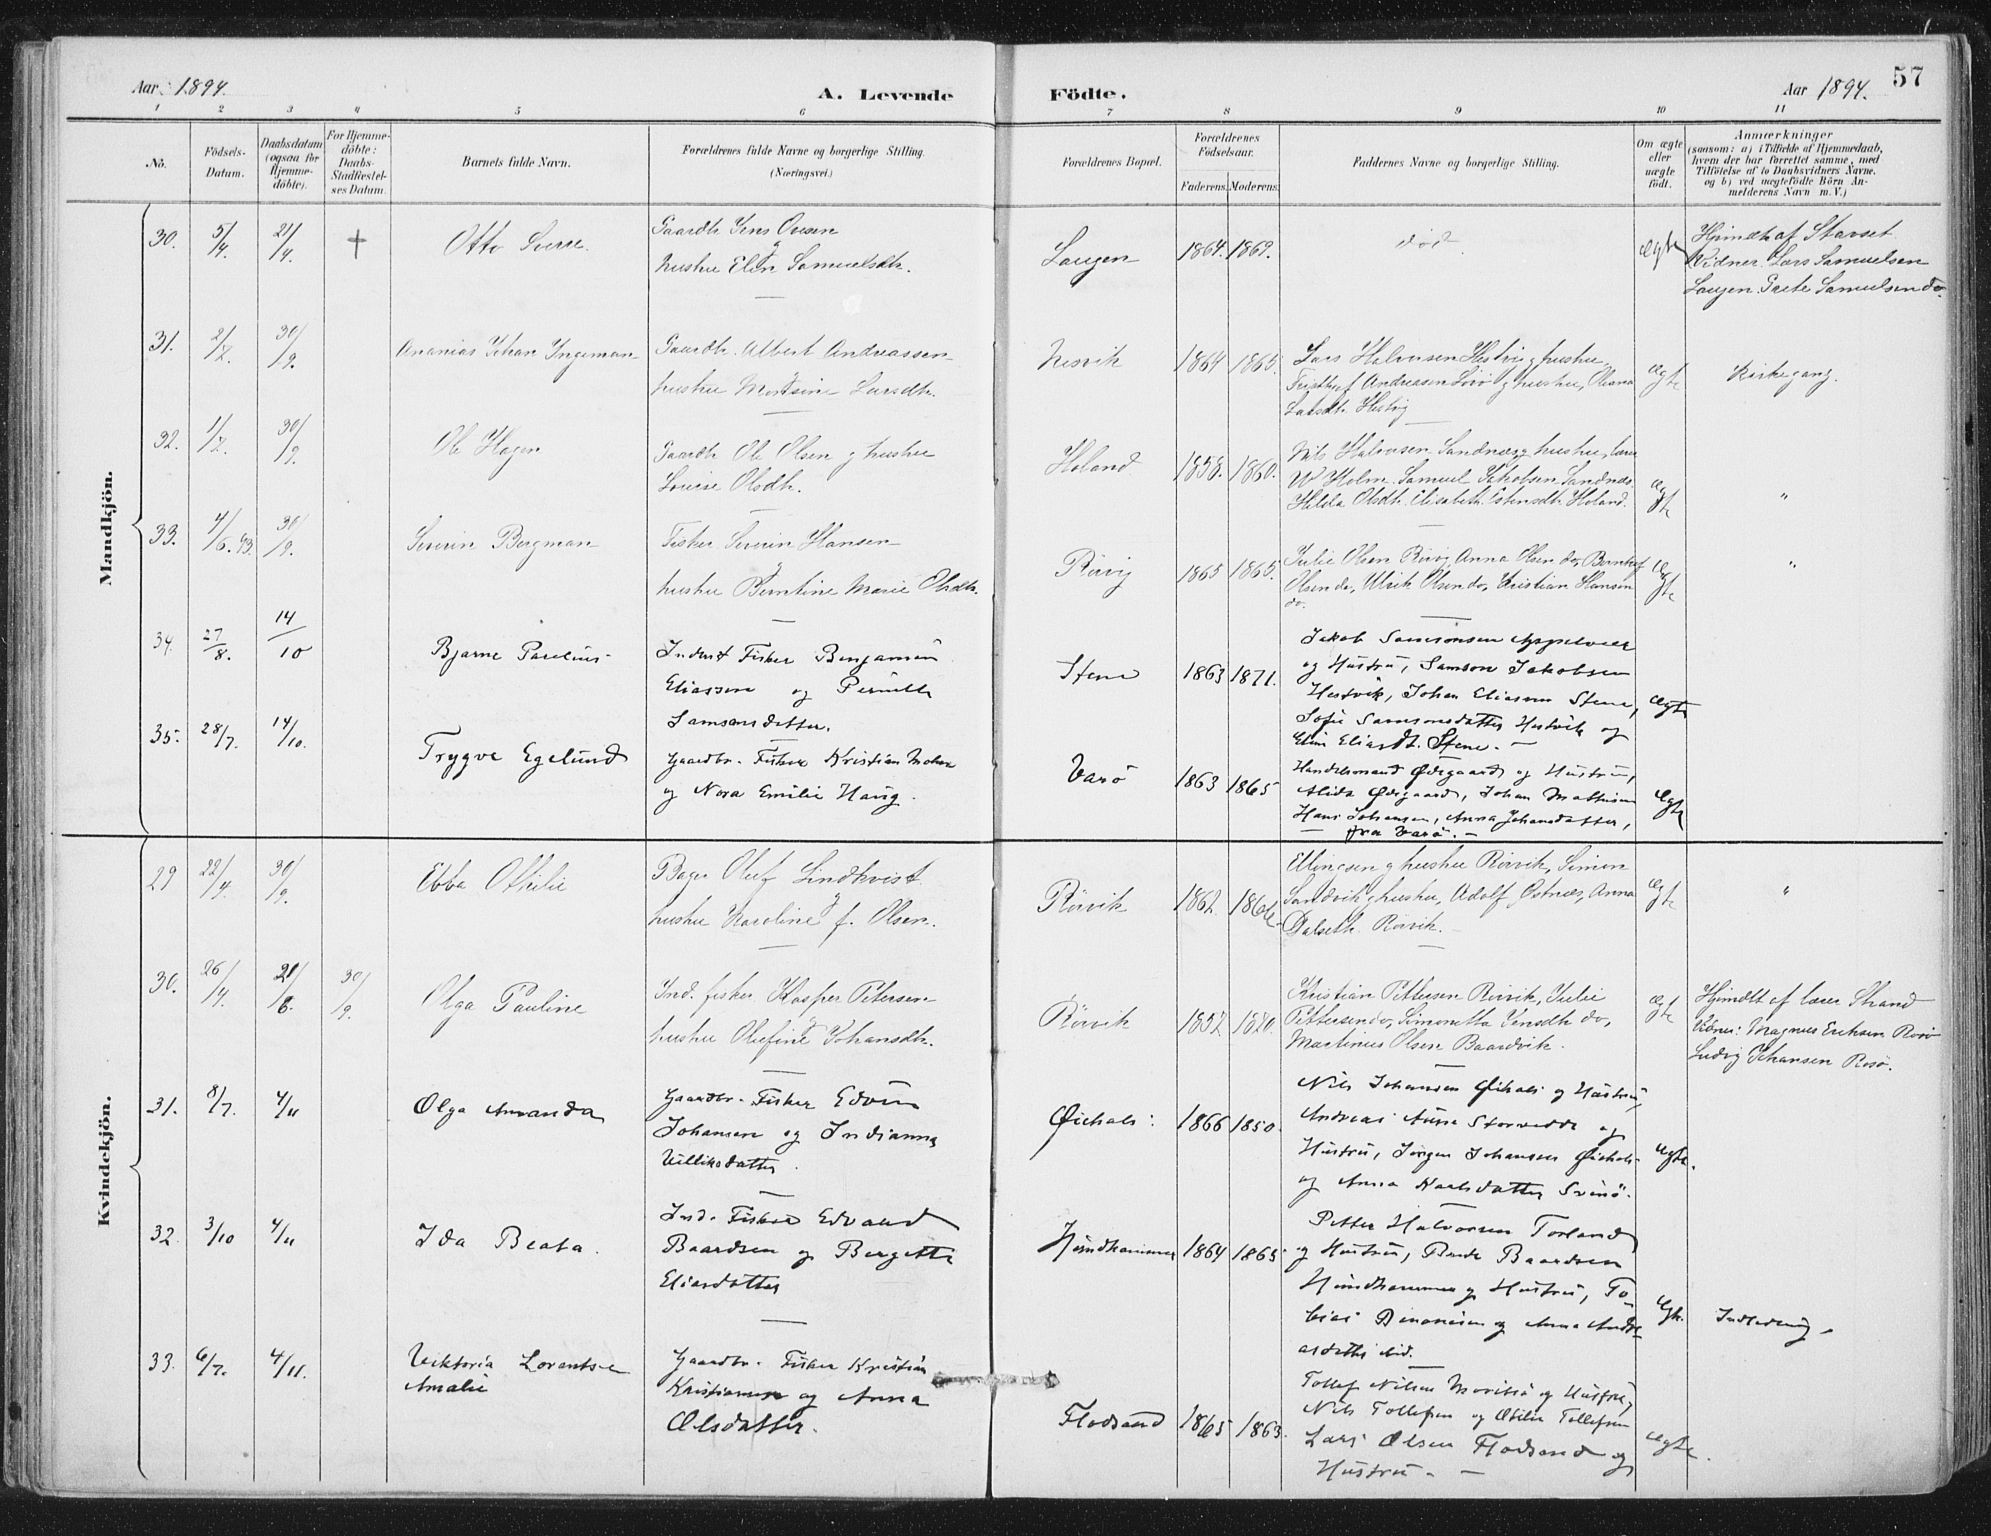 Aar 1894.
A. Levende Födte.
Aar 1894.
57
1 2 3 4 5 6 7 8 9 10 11
No.
Födsels-Datum.
Daabsdatum (ogsaa for Hjemme-döbte).
For Hjemme-döbte: Daabs-Stadfæstel-ses Datum.
Barnets fulde Navn.
Forældrenes fulde Navne og borgerlige Stilling. (Næringsvei.)
Forældrenes Bopæl.
Forældrenes Födselsaar.
Faderens. Moderens.
Faddernes Navne og borgerlige Stilling.
Om ægte eller uægte födt.
Anmærkninger
(saasom: a) i Tilfælde af Hjemmedaab,
hvem der har forrettet samme, med
Tilföielse af to Daabsvidners Navne.
og b) ved uægtefödte Börn An-
melderens Navn m. V.)
Mandkjön.
30. 5/4. 21/4. † Otto Sverre.
Gaardbr Jens Ovesen
g
hustru Elen Samuelsdtr.
Laugen 1864. 1869.
død
ægte
Hjemdbt af Stavset
Vidner: Lars Samuelsen
Laugen. Grete Samuelsen do.
31. 2/7. 30/9. Ananias Johan Ingeman
Gaardbr. Albert Andreassen
hustru Mortsine Larsdtr.
Nesvik 1864 1865.
Lars Halvorsen Hestvig g hustru
Fridthjof Andreasen g hustru, Oliana
Larsdtr. Hestvig
ægte
Kirkegang.
32. 1/7. 30/9. Ole Hagen
Gaardbr Ole Olsen g hustru
Lovise Olsdtr.
Holand 1858. 1860.
Nils Halvorsen Sandnæs g hustru, lærer
W Holm. Samuel Jakobsen Sandnæs
Hilda Olsdtr. Elisabeth Estensdtr Holand.
ægte
"
33. 4/6.93. 30/9. Severin Bergman
Fisker Severin Hansen
g
hustru Berntine Marie Olsdtr.
Rörvig 1865 1865.
Julie Olsen Rörvig, Anna Olsen do, Bernhof
Olsen do, Ulrik Olsen do, Kristian Hansen
do.
ægte
"
34. 27/8. 14/10 Bjarne Parelius
Inderst Fisker Benjamin
Eliassen og Pernille
Samsonsdatter.
Stene 1863 1871.
Jakob Samsonsen Appelvær
og Hustru, Samson Jakobsen
Hestvik, Johan Eliassen Stene,
Sofie Samsonsdatter Hestvik og
Elen Eliasdt. Stene. –
ægte
35. 28/7. 14/10. Trygve Egelund
Gaardbr. Fisker Kristian
og Nora Emilie Haug.
Varö 1863 1865
Handelsmand Ødegaard og Hustru,
Alida Ødegaard, Johan Mathisen
Hans Johansen, Anna Johansdatter,
– fra Varö. –
ægte
Kvindekjön.
29 22/4. 30/9. Ebba Othilie
Bager Oluf Lindkvist
g
hustru Karoline f. Olsen.
Rörvik 1862. 1866
Ellingsen g hustru Rörvik, Simon
Sandvik g hustru, Adolf Østnes, Anna
Dalseth Rörvik.
ægte
"
30. 26/4. 21/6. 30/9. Olga Pauline
Ind. fisker Kasper Petersen
g
hustru Olefine Johansdtr.
Rörvik 1857. 1870.
Kristian Pettersen Rörvik, Julie
Pettersen do, Simonetta Jensdtr do,
Martinus Olsen Baardvik.
ægte
Hjemdbt af lærer Strand
Vidner: Magnus Eriksen Rosö
Ludvig Johansen Rosö.
31. 8/7. 4/11 Olga Amanda
Gaardbr. Fisker Edvin
Johansen og Indianna
Villiksdatter.
Øichals: 1866 1850.
Nils Johansen Øichals og Hustru,
Andreas Aune Storvedde og
Hustru, Jörgen Johansen Øichals
og Anna Karlsdatter Svinö.
ægte.
32. 3/10 4/11 Ida Beata.
Ind. Fisker Edvard
Baardsen og Bergitte
Eliasdatter
Hundhammer 1864 1865
Petter Halvorsen Torland
og Hustru, Baardsen
Hundhammer og Hustru, To-
bias og Anna Andre-
asdatter ibid.
ægte.
Indledning.
33. 6/7. 4/11. Viktoria Lorentse
Amalie
Gaardbr. Fisker Kristian
Kristiansen og Anna
Olsdatter.
Flodsand 1865 1863.
Tollef Nilsen og Hustru,
Nils Tollefsen og Otilie Tollefsen
Lars Olsen Flodsand og
Hustru. –
ægte.